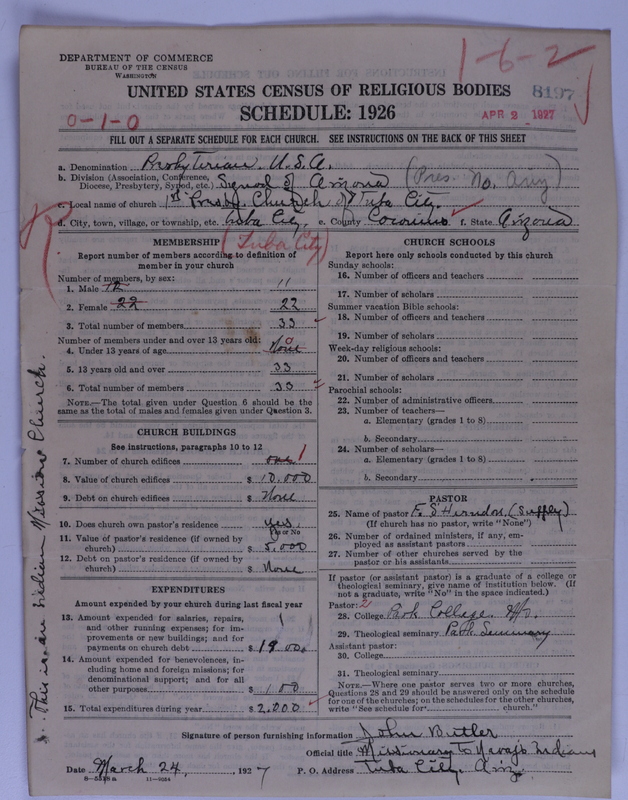 DEPARTMENT OF COMMERCE
BUREAU OF THE CENSUS
WASHINGTON
1-6-2
UNITED STATES CENSUS OF RELIGIOUS BODIES
8197
SCHEDULE: 1926
APR 2 1927
0-1-0
FILL OUT A SEPARATE SCHEDULE FOR EACH CHURCH. SEE INSTRUCTIONS ON THE BACK OF THIS SHEET
a. Denomination Presbyterian U.S.A.
b. Division (Association, Conference, Diocese, Presbytery, Synod, etc.) Synod of Arizona (Pres. No. Ariz)
c. Local name of church 1st Presby. Church of Tuba City.
d. City, town, village, or township, etc. Tuba City. e. County Coconino f. State Arizona
(Tuba City)
MEMBERSHIP
Report number of members according to definition of
member in your church
Number of members, by sex:
1. Male 12 11
2. Female 22 22
3. Total number of members 33
Number of members under and over 13 years old:
4. Under 13 years of age None 0
5. 13 years old and over 33
6. Total number of members 33
NOTE.—The total given under Question 6 should be the
same as the total of males and females given under Question 3.
CHURCH BUILDINGS
See instructions, paragraphs 10 to 12
7. Number of church edifices one 1
8. Value of church edifices $ 10,000
9. Debt on church edifices $ None
10. Does church own pastor's residence yes.
Yes or No
11. Value of pastor's residence (if owned by
church) $ 5,000
12. Debt on pastor's residence (if owned by
church) $ None
EXPENDITURES
Amount expended by your church during last fiscal year
13. Amount expended for salaries, repairs,
and other running expenses; for im-
provements or new buildings; and for
payments on church debt $ 1900
14. Amount expended for benevolences, in-
cluding home and foreign missions; for
denominational support; and for all
other purposes $ 100
15. Total expenditures during year $ 2,000
CHURCH SCHOOLS
Report here only schools conducted by this church
Sunday schools:
16. Number of officers and teachers
17. Number of scholars
Summer vacation Bible schools:
18. Number of officers and teachers
19. Number of scholars
Week-day religious schools:
20. Number of officers and teachers
21. Number of scholars
Parochial schools:
22. Number of administrative officers
23. Number of teachers—
a. Elementary (grades 1 to 8)
b. Secondary
24. Number of scholars—
a. Elementary (grades 1 to 8)
b. Secondary
PASTOR
25. Name of pastor F. S. Herndon, (Supply)
(If church has no pastor, write "None")
26. Number of ordained ministers, if any, em-
ployed as assistant pastors
27. Number of other churches served by the
pastor or his assistants
If pastor (or assistant pastor) is a graduate of a college or
theological seminary, give name of institution below. (If
not a graduate, write "No" in the space indicated.)
Pastor: 2
28. College Park College. Mo.
29. Theological seminary Park Seminary
Assistant pastor:
30. College
31. Theological seminary
NOTE.—Where one pastor serves two or more churches,
Questions 28 and 29 should be answered only on the schedule
for one of the churches; on the schedules for the other churches,
write "See schedule for church."
This is an Indian Missions Church.
Signature of person furnishing information John Butler
Official title Missionary to Navajo Indians
Date March 24, 1927 P. O. Address Tuba City. Ariz.